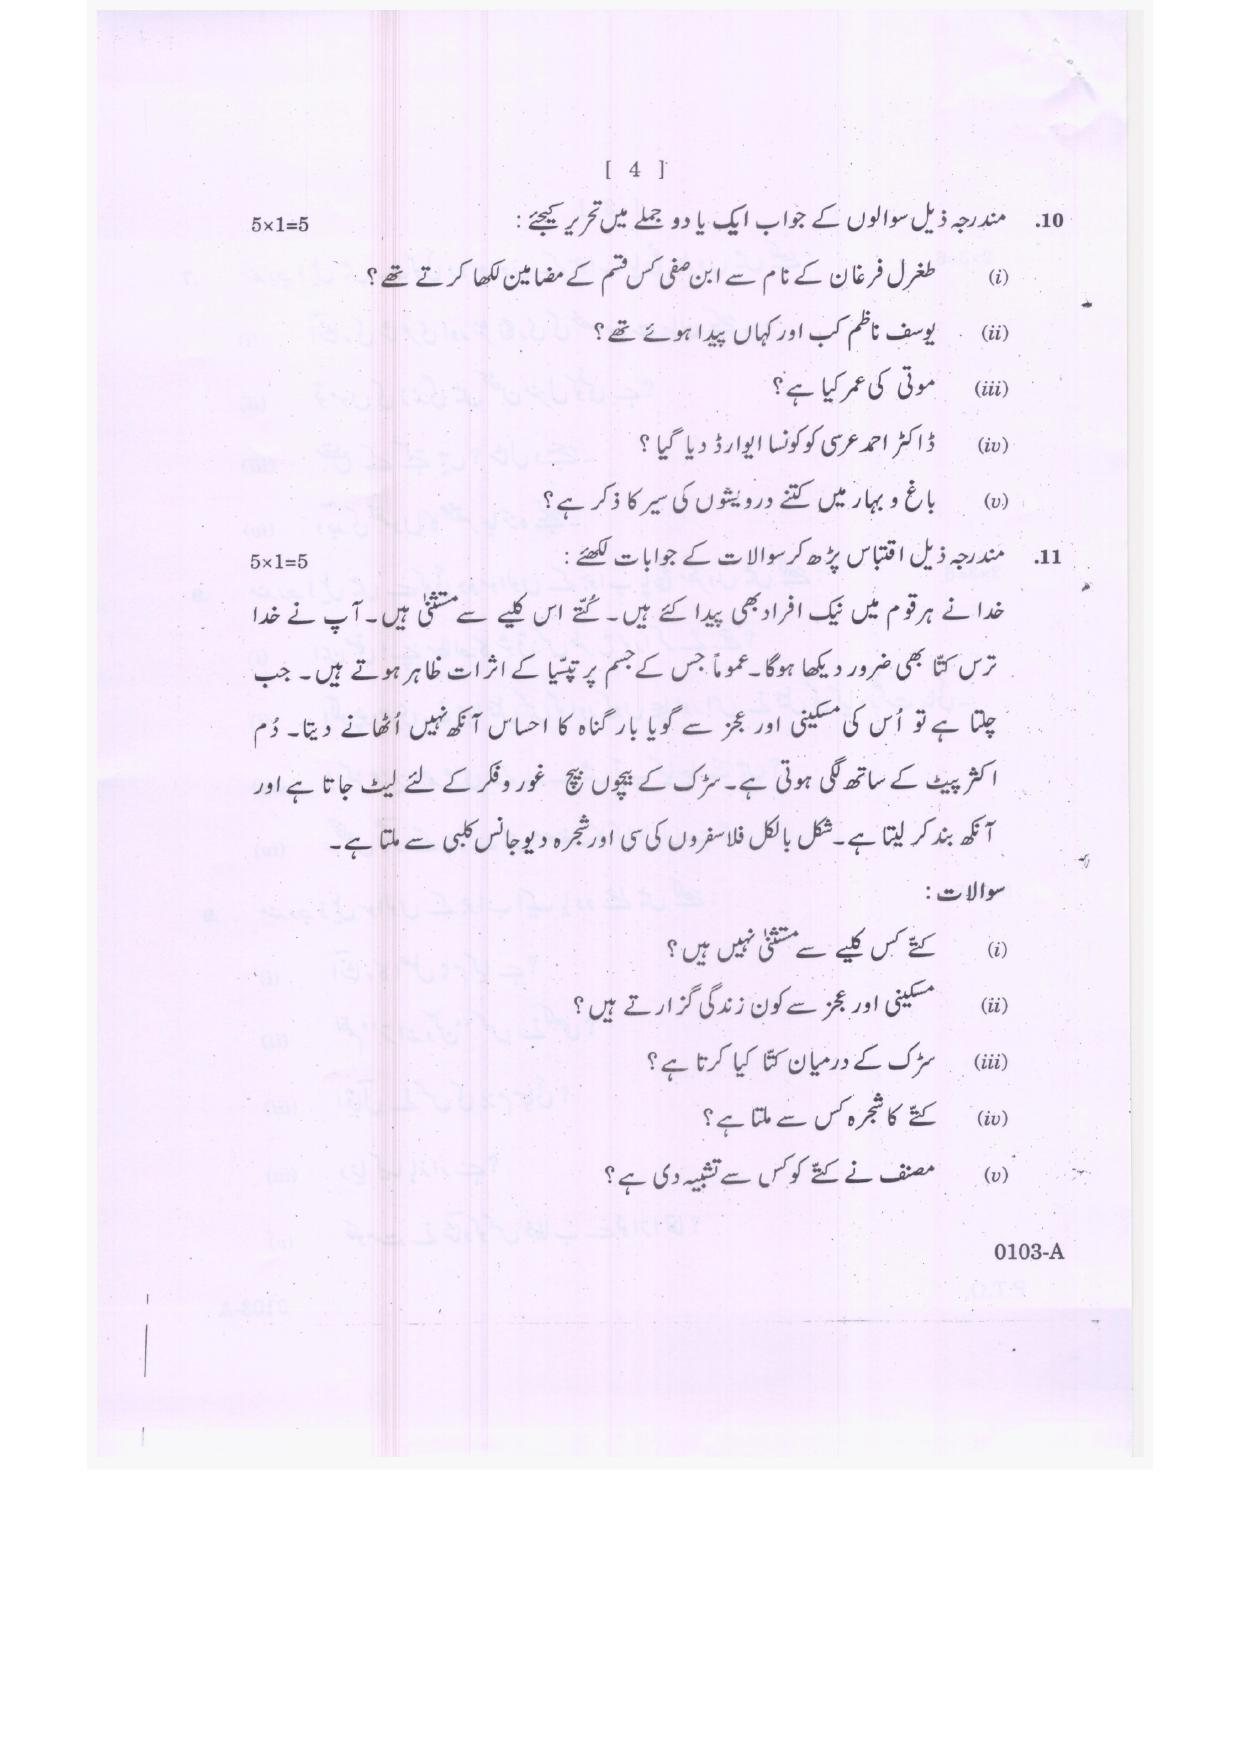 [ 4 ]
10. مندرجہ ذیل سوالوں کے جواب ایک یا دو جملے میں تحریر کیجئے : 5×1=5
(i) طغرل فرغان کے نام سے ابن صفی کس قسم کے مضامین لکھا کرتے تھے؟
(ii) یوسف ناظم کب اور کہاں پیدا ہوئے تھے؟
(iii) موتی کی عمر کیا ہے؟
(iv) ڈاکٹر احمد عرسی کو کونسا ایوارڈ دیا گیا ؟
(v) باغ و بہار میں کتنے درویشوں کی سیر کا ذکر ہے؟
11. مندرجہ ذیل اقتباس پڑھ کر سوالات کے جوابات لکھئے : 5×1=5
خدا نے ہر قوم میں نیک افراد بھی پیدا کئے ہیں۔ کُتّے اس کلیے سے مستثنیٰ ہیں۔ آپ نے خدا
ترس کتّا بھی ضرور دیکھا ہوگا۔ عموماً جس کے جسم پر تپسّیا کے اثرات ظاہر ہوتے ہیں۔ جب
چلتا ہے تو اُس کی مسکینی اور عجز سے گویا بار گناہ کا احساس آنکھ نہیں اُٹھانے دیتا۔ دُم
اکثر پیٹ کے ساتھ لگی ہوتی ہے۔ سڑک کے بیچوں بیچ غور و فکر کے لئے لیٹ جاتا ہے اور
آنکھ بند کر لیتا ہے۔ شکل بالکل فلاسفروں کی سی اور شجرہ دیو جانس کلبی سے ملتا ہے۔
سوالات :
(i) کتّے کس کلیے سے مستثنیٰ نہیں ہیں؟
(ii) مسکینی اور عجز سے کون زندگی گزارتے ہیں؟
(iii) سڑک کے درمیان کتّا کیا کرتا ہے؟
(iv) کتّے کا شجرہ کس سے ملتا ہے؟
(v) مصنف نے کتّے کو کس سے تشبیہ دی ہے؟
0103-A